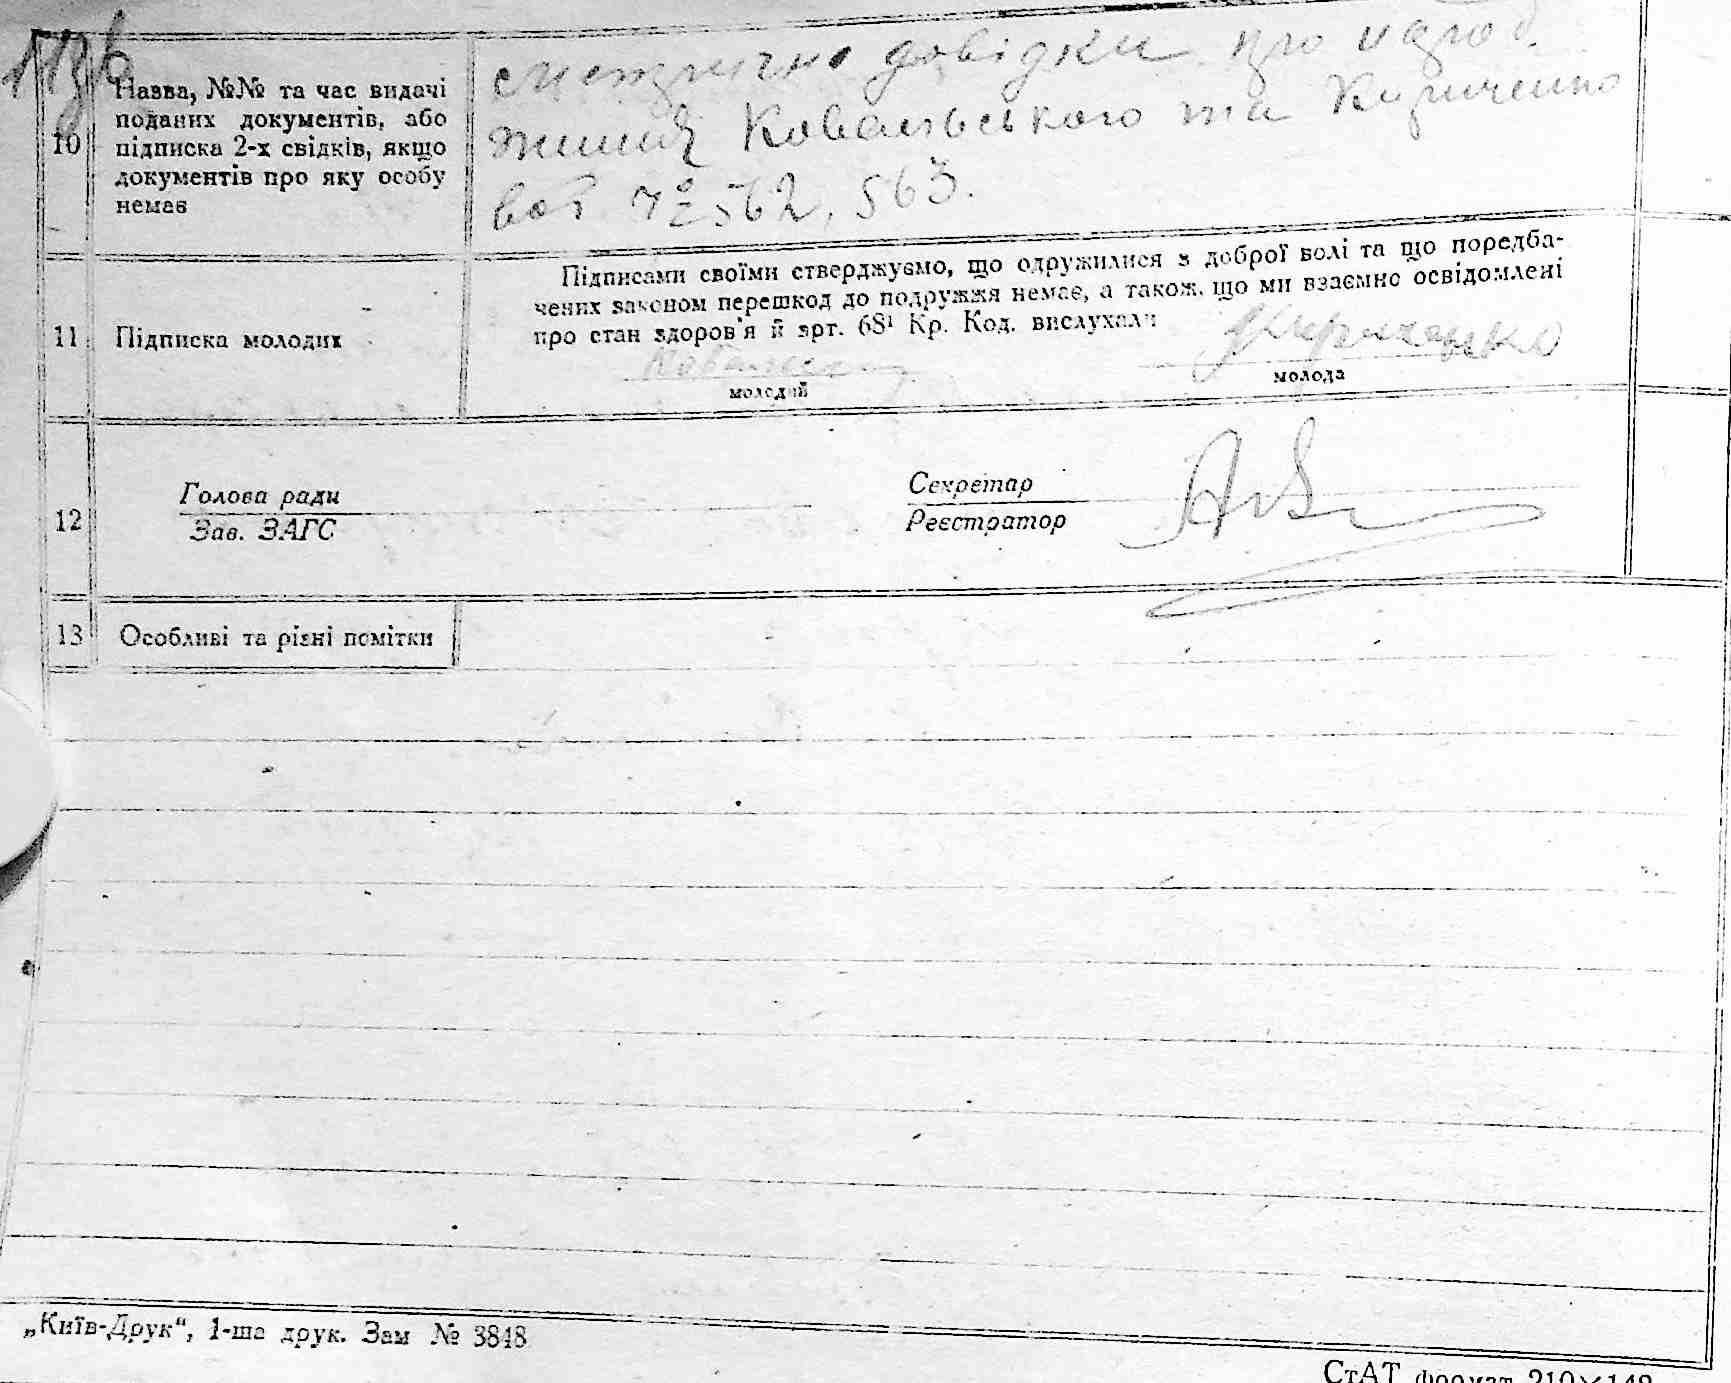 Назва, №№ та час видачі
поданих документів, або
10 підписка 2-х свідків, якщо
документів про яку особу
немає
метричні довідки про народ
ження Ковальського та Кириченко
вої № 562, 563.
11 Підписка молодих
Підписами своїми стверджуємо, що одружилися з доброї волі та що поредба-
чених законом перешкод до подружжя немає, а також, що ми взаємно освідомлені
про стан здоров'я й арт. 68¹ Кр. Код. вислухали
Кириченко
молодий
молода
12 Голова ради
Зав. ЗАГС
Секретар
Реєстратор
13 Особливі та різні помітки
„Київ-Друк“, 1-ша друк. Зам № 3848
СтАТ формат 210×148